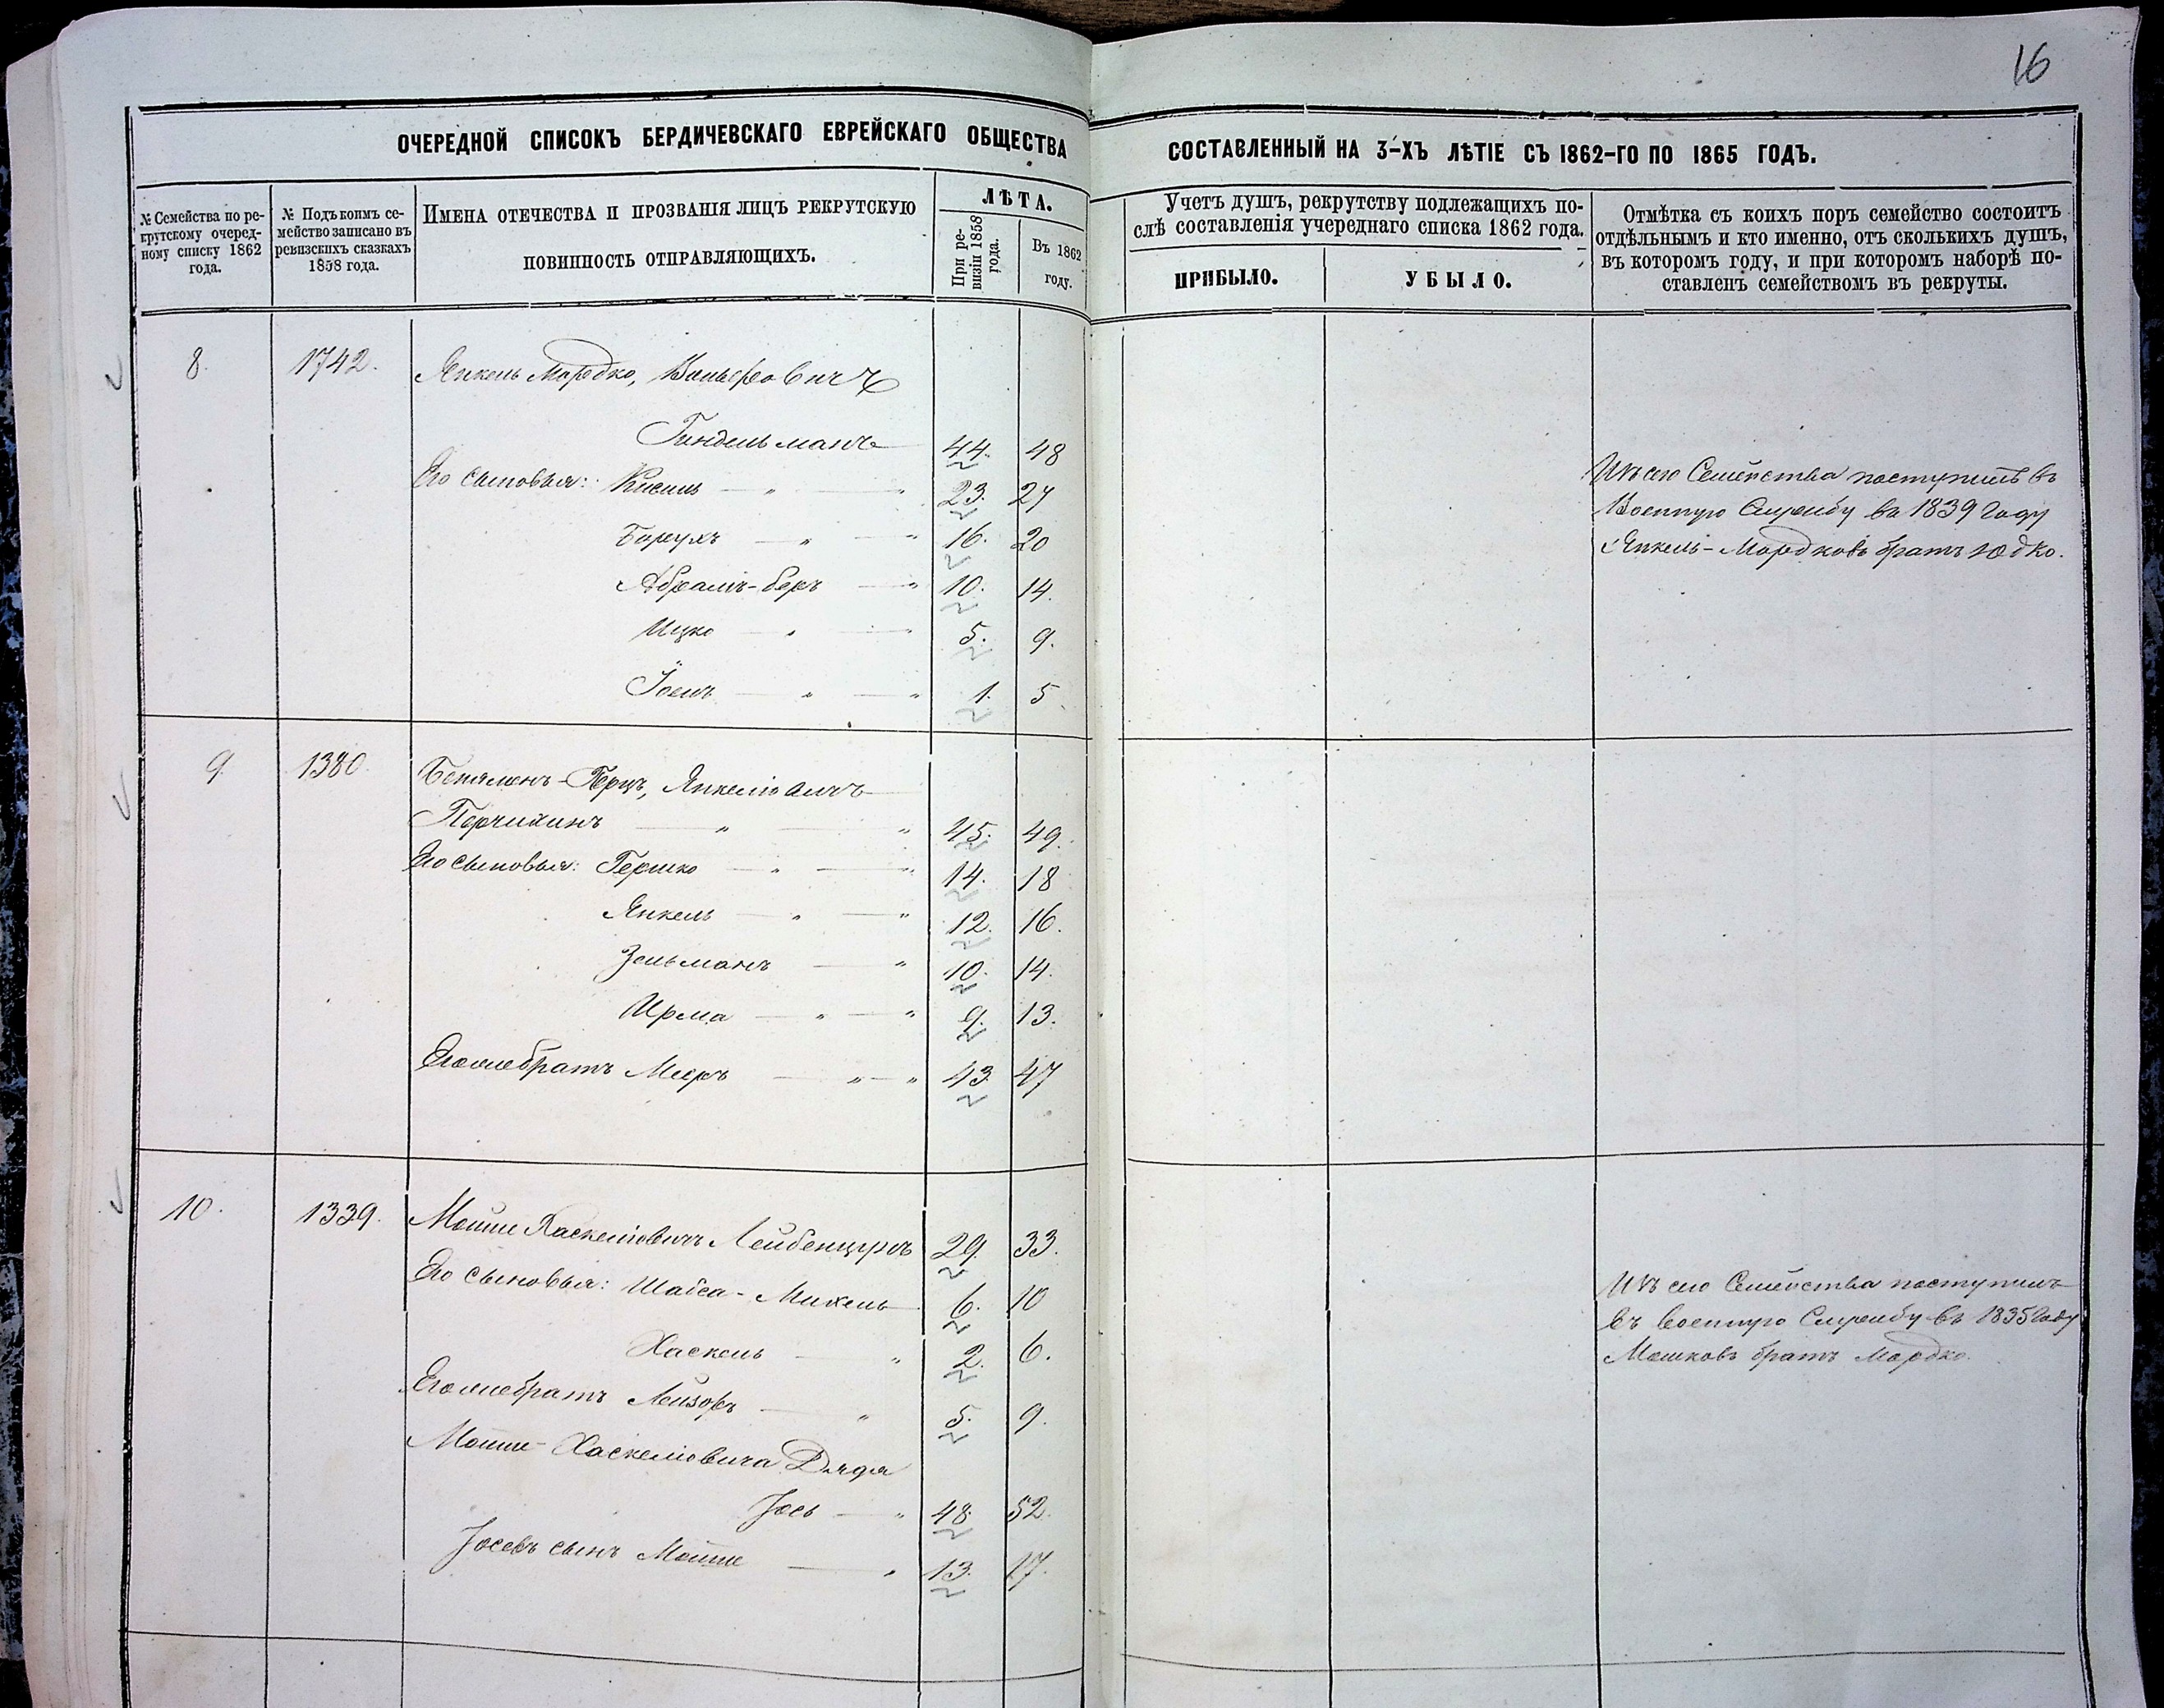 16
ОЧЕРЕДНОЙ СПИСОКЪ БЕРДИЧЕВСКАГО ЕВРЕЙСКАГО ОБЩЕСТВА
СОСТАВЛЕННЫЙ НА 3-ХЪ ЛѢТІЕ СЪ 1862-ГО ПО 1865 ГОДЪ.
№ Семейства по ре-
крутскому очеред-
ному списку 1862
года.
№ Подъ коимъ се-
мейство записано въ
ревизскихъ сказкахъ
1858 года.
ИМЕНА ОТЕЧЕСТВА И ПРОЗВАНІЯ ЛИЦЪ РЕКРУТСКУЮ
ПОВИННОСТЬ ОТПРАВЛЯЮЩИХЪ.
ЛѢТА.
При ре-
визіи 1858
года.
Въ 1862
году.
Учетъ душъ, рекрутству подлежащихъ по-
слѣ составленія учереднаго списка 1862 года.
ПРИБЫЛО.
УБЫЛО.
Отмѣтка съ коихъ поръ семейство состоитъ
отдѣльнымъ и кто именно, отъ сколькихъ душъ,
въ которомъ году, и при которомъ наборѣ по-
ставленъ семействомъ въ рекруты.
8. 1742. Янкель Мордко, Вольфовичъ
Гиндельманъ 44. 48
Его сыновья: Кисиль " " 23. 27
Борухъ " " 16. 20
Абрамъ-беръ " 10. 14.
Ицко " " 5. 9.
Іоель " " 1. 5
Изъ сего Семейства поступилъ въ
Военную Службу въ 1839 Году
Янкель-Мордковъ братъ Юдко.
9. 1380. Бенялинъ-Герцъ, Янкеліовичъ
" " 45. 49.
Его сыновья: Гершко " " 14. 18
Янкель " " 12. 16.
Зельманъ " 10. 14.
Ирма " " 9. 13.
Его же братъ Мееръ " " 43. 47
10. 1339. Мошше Хаскеліовичъ Лейбенцуръ 29. 33.
Его сыновья: Шабса-Михель 6. 10
Хаскель " 2. 6.
Его же братъ Лейзоръ " 5. 9.
Мошше Хаскеліовича Дядя
Іось " 48. 52.
Іосевъ сынъ Мошше " 13. 17.
Изъ сего Семейства поступилъ
въ военную Службу въ 1835 Году
Мошковъ братъ Мордко.